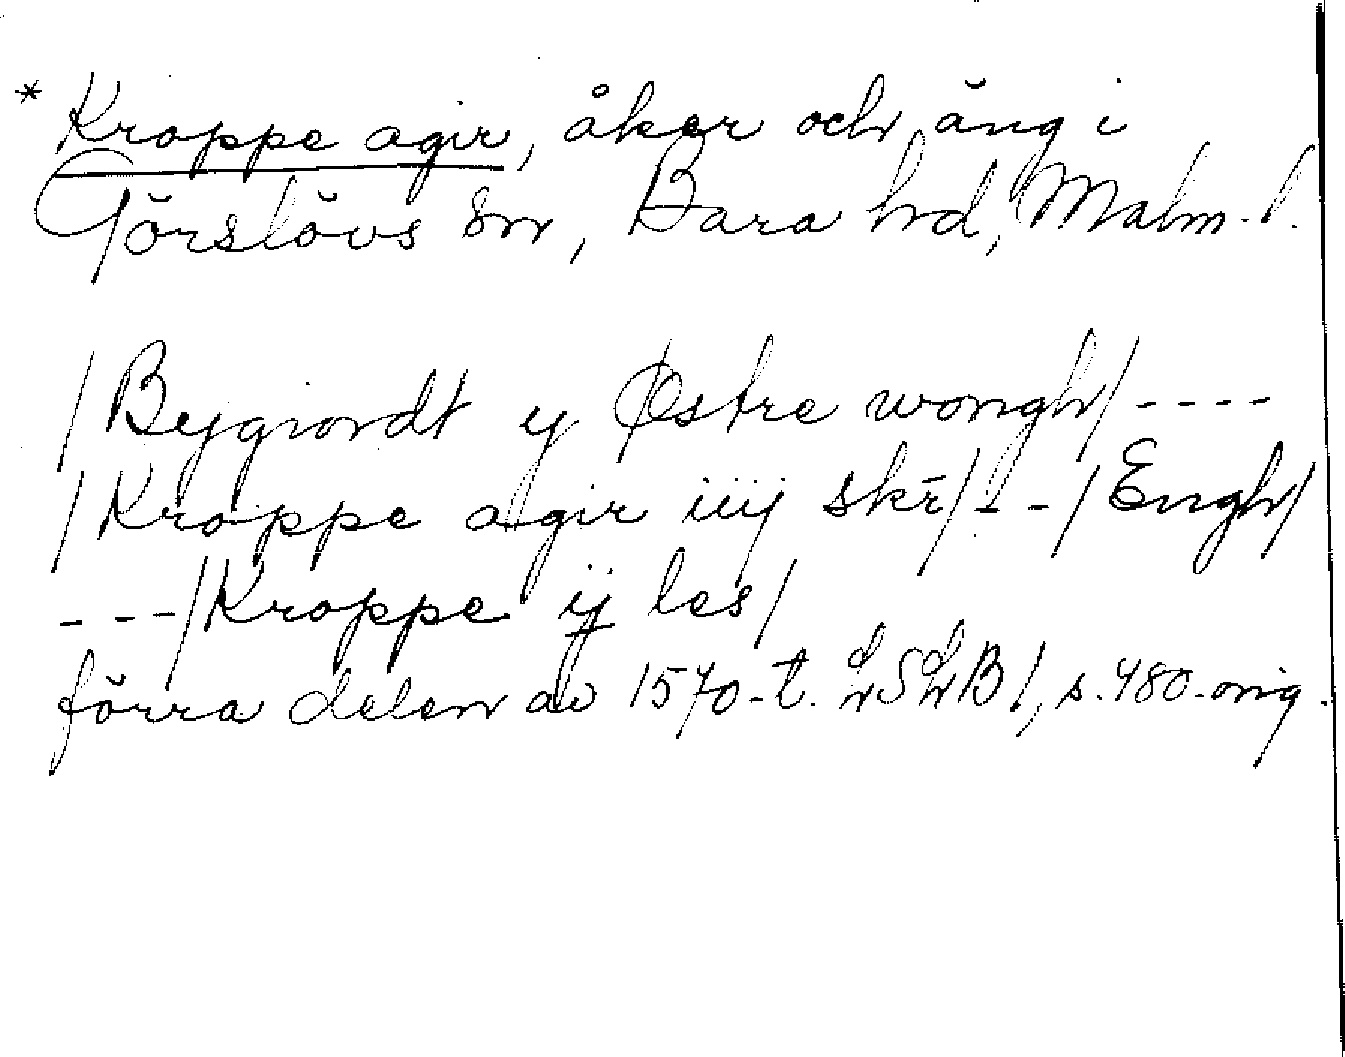 * Kroppe agir, åker och äng i
Görslövs sn, Bara hd, Malm. l.
/Bygiordt y Østre wongh/ ----
/Kroppe agir iiij skr̄/ - - /Engh/
---/Kroppe ij les/
förra delen av 1570-t. LSLB1, s. 480. orig.